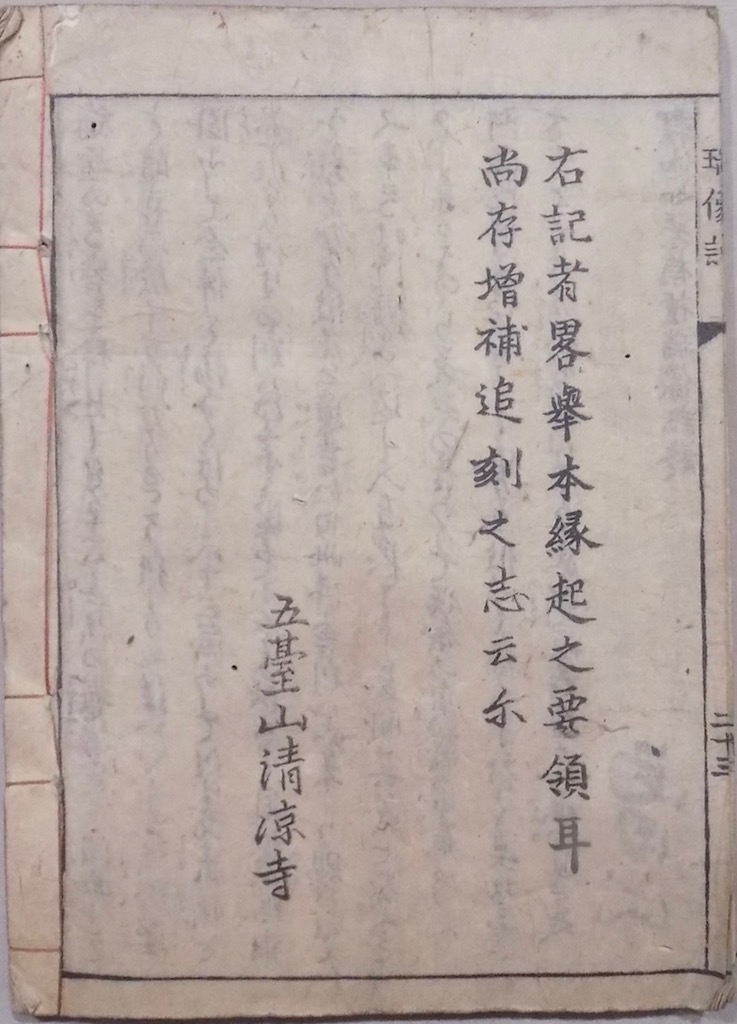 右記者畧舉本縁起之要領耳
尚存增補追刻之志云尓
五臺山清凉寺
二十三